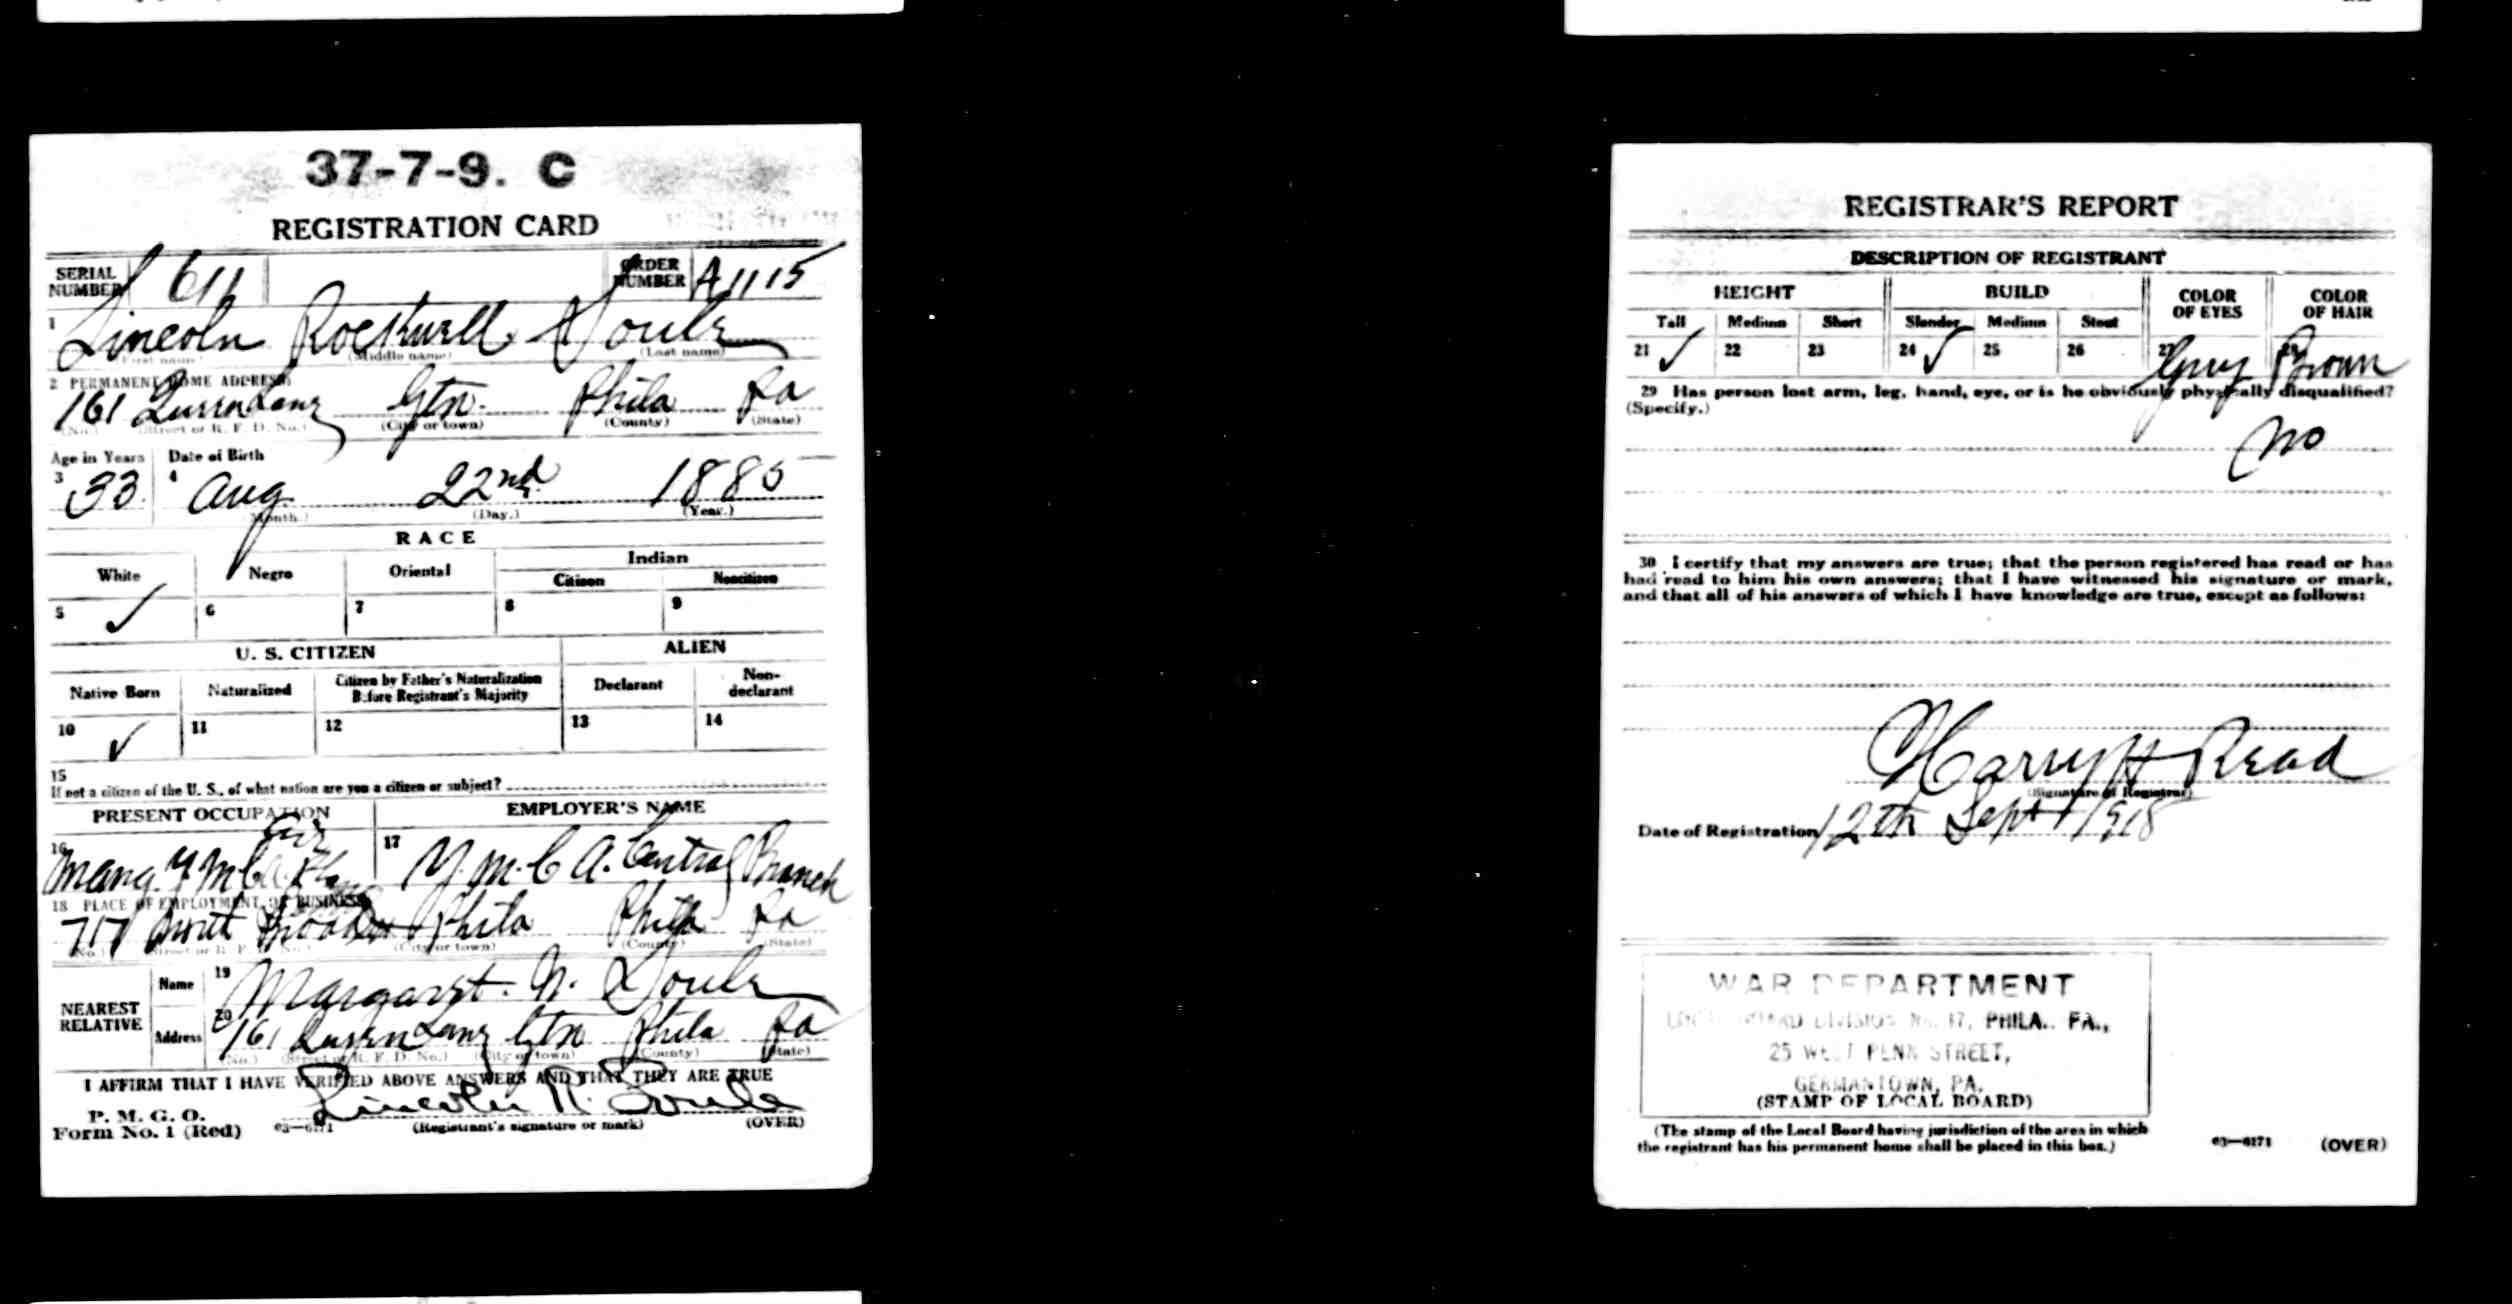 37-7-9. C
REGISTRATION CARD
SERIAL NUMBER 611 ORDER NUMBER A1115
1 Lincoln Rockwell Soule
(First name) (Middle name) (Last name)
2 PERMANENT HOME ADDRESS:
161 Queen Lane Gtn. Phila Pa
(No.) (Street or R. F. D. No.) (City or town) (County) (State)
Age in Years Date of Birth
3 33 4 Aug. 22nd 1885
(Month.) (Day.) (Year.)
RACE
White Negro Oriental Indian
Citizen Noncitizen
5 ✓ 6 7 8 9
U. S. CITIZEN ALIEN
Native Born Naturalized Citizen by Father's Naturalization Before Registrant's Majority Declarant Non-declarant
10 ✓ 11 12 13 14
15
If not a citizen of the U. S., of what nation are you a citizen or subject?
PRESENT OCCUPATION EMPLOYER'S NAME
16 Y M C A 17 Y. M. C A. Central Branch
18 PLACE OF EMPLOYMENT OR BUSINESS:
717 Broad Phila Phila Pa
(No.) (Street or R. F. D. No.) (City or town) (County) (State)
NEAREST RELATIVE Name 19 Margaret. N. Soule
Address 20 161 Queen Lane Gtn Phila Pa
(No.) (Street or R. F. D. No.) (City or town) (County) (State)
I AFFIRM THAT I HAVE VERIFIED ABOVE ANSWERS AND THAT THEY ARE TRUE
P. M. G. O.
Form No. 1 (Red) 03—6171 Lincoln R. Soule
(Registrant's signature or mark) (OVER)
REGISTRAR'S REPORT
DESCRIPTION OF REGISTRANT
HEIGHT BUILD COLOR OF EYES COLOR OF HAIR
Tall Medium Short Slender Medium Stout
21 ✓ 22 23 24 ✓ 25 26 27 Grey 28 Brown
29 Has person lost arm, leg, hand, eye, or is he obviously physically disqualified?
(Specify.)
No
30 I certify that my answers are true; that the person registered has read or has
had read to him his own answers; that I have witnessed his signature or mark,
and that all of his answers of which I have knowledge are true, except as follows:
Harry H Read
(Signature of Registrar)
Date of Registration 12th Sept 1918
WAR DEPARTMENT
LOCAL BOARD DIVISION No. 37, PHILA. PA.,
25 WEST PENN STREET,
GERMANTOWN, PA.
(STAMP OF LOCAL BOARD)
(The stamp of the Local Board having jurisdiction of the area in which
the registrant has his permanent home shall be placed in this box.)
03—6171 (OVER)